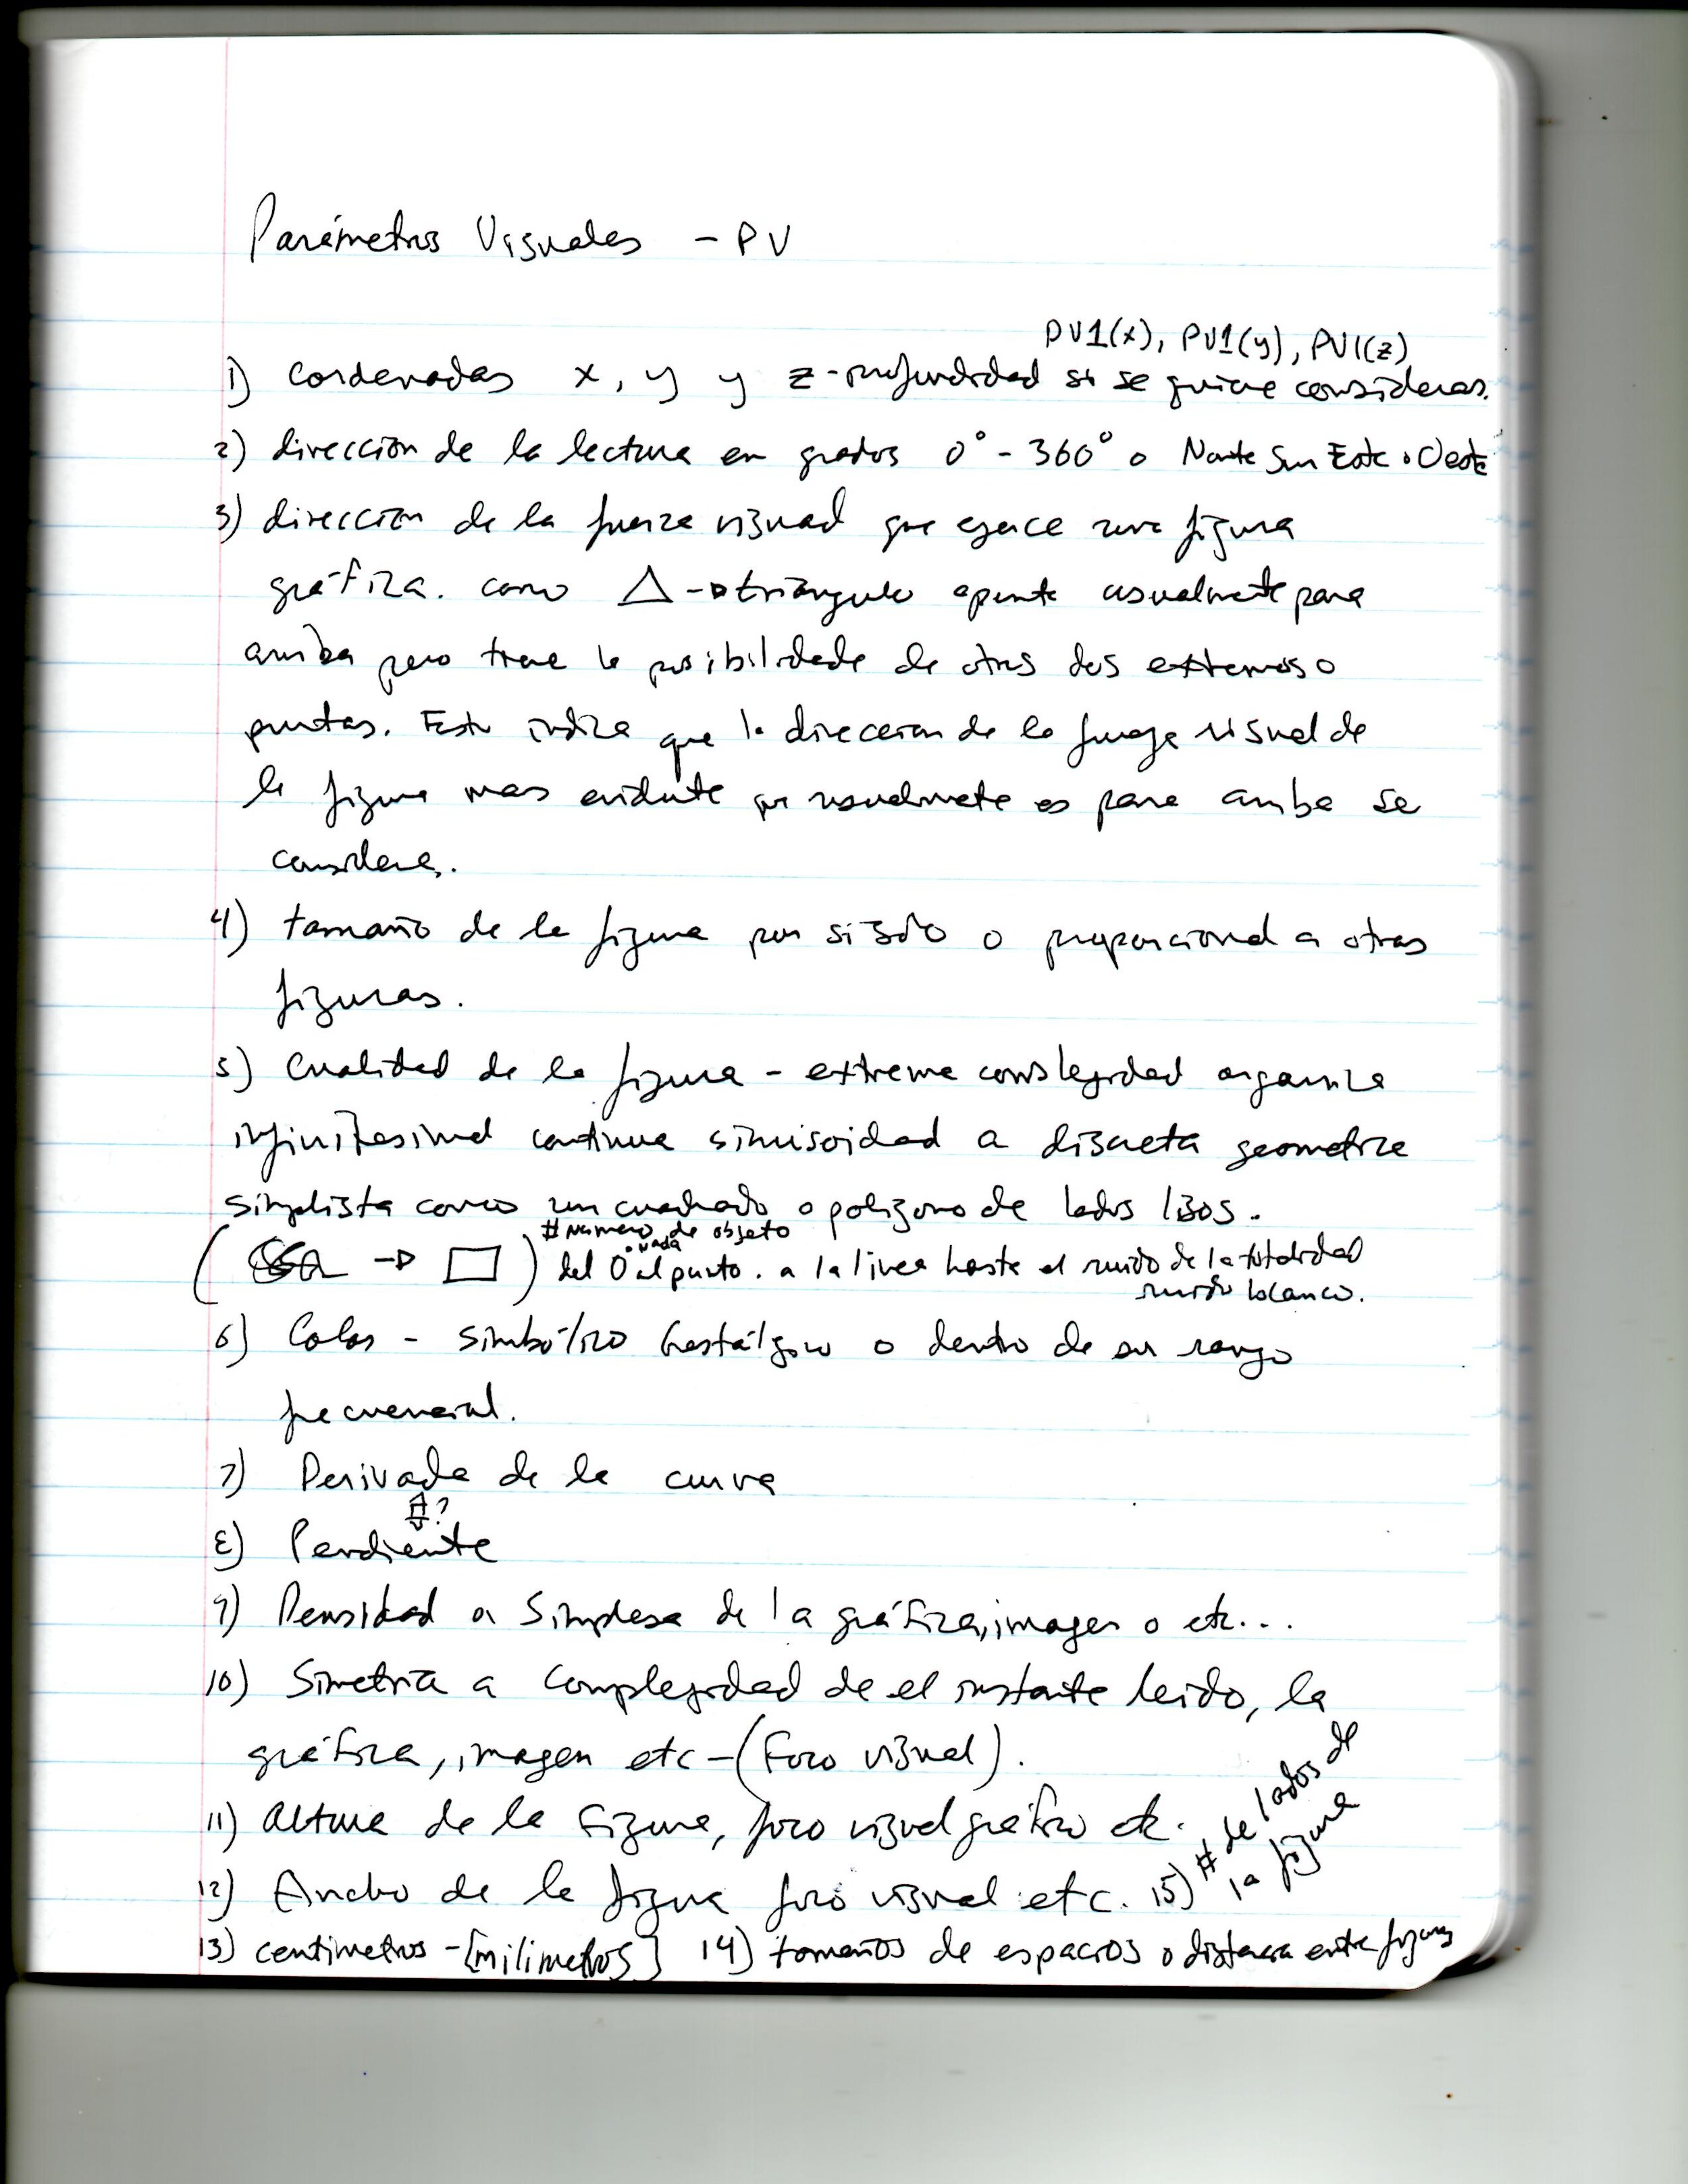 Parámetros Visuales - PV
PV1(x), PV1(y), PV1(z)
1) Cordenadas x, y y z-profundidad si se quiere considerar.
2) dirección de la lectura en grados 0° - 360° o Norte Sur Este o Oeste
3) dirección de la fuerza visual que ejerce una figura
gráfica. como △ → triángulo apunta usualmente para
arriba pero tiene la posibilidade de otros dos extremos o
puntas. Esto indica que la dirección de la fuerza visual de
la figura mas evidente que usualmente es para arriba se
considera.
4) tamaño de la figura por si solo o proporcional a otras
figuras.
5) Cualidad de la figura - extrema complegidad organica
infinitesimal continua sinusoidad a discreta geometrica
simplista como un cuadrado o poligono de lados lisos.
# número de objeto
( → □ ) del 0 nada al punto . a la linea hasta el ruido de la totalidad
ruido blanco.
6) Color - simbólico Gestáltico o dentro de su rango
frecuencial.
7) Derivada de la curva
⇕?
8) Pendiente
9) Densidad a Simplesa de la gráfica, imagen o etc...
10) Simetria a Complegidad de el instante leido, la
gráfica, imagen etc - (Foro visual).
11) Altura de la Figura, foro visual gráfico etc.
12) Ancho de la figura foro visual etc. 15) # de lados de
la figura
13) centimetros - [milimetros] 14) tamaños de espacios o distancia entre figuras